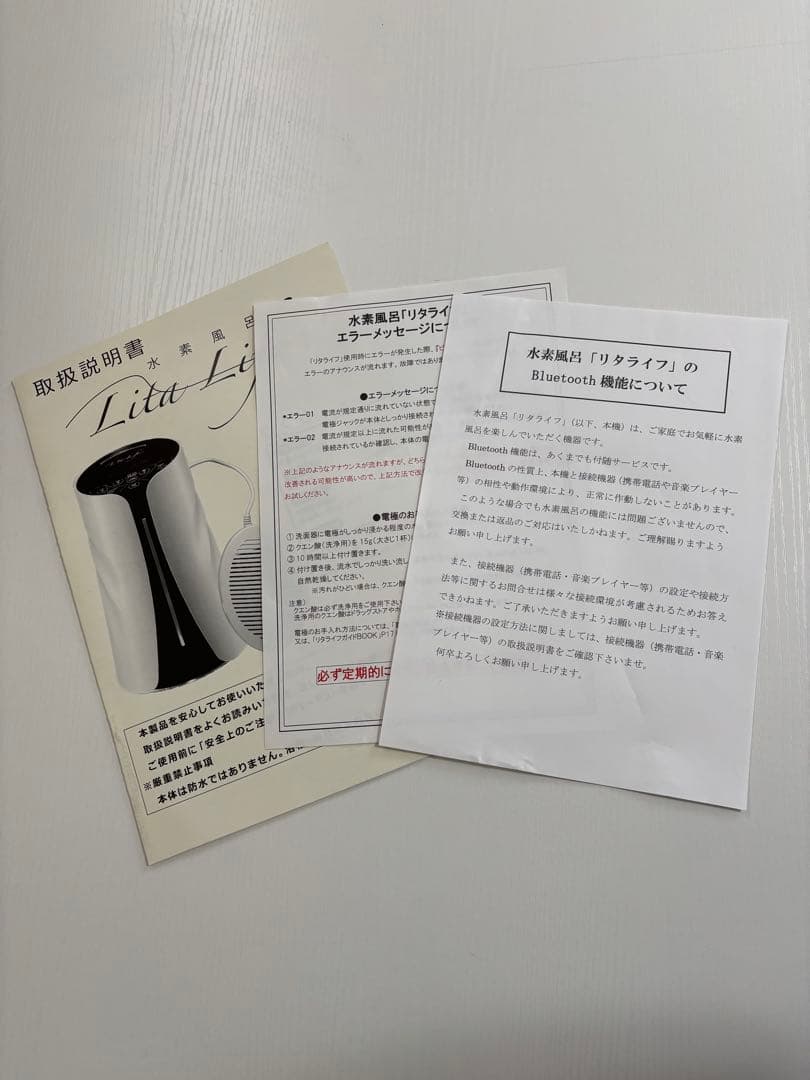 取扱説明書
水素風呂
Lita Li
本製品を安心してお使いいた
取扱説明書をよくお読みい
ご使用前に「安全上のご注
※厳重禁止事項
本体は防水ではありません。浴
水素風呂「リタライ
エラーメッセージにつ
「リタライフ」使用時にエラーが発生した際、『ピ
エラーのアナウンスが流れます。故障ではあり
●エラーメッセージにつ
*エラー01 電流が規定通りに流れていない状態で
電極ジャックが本体としっかり接続され
*エラー02 電流が規定以上に流れた可能性が
接続されているか確認し、本体の電
※上記のようなアナウンスが流れますが、どちら
改善される可能性が高いので、上記方法で改
お試しください。
●電極のお
①洗面器に電極がしっかり浸かる程度の
②クエン酸(洗浄用)を15g(大さじ1杯)
③10時間以上付け置きます。
④付け置き後、流水でしっかり洗い流し
自然乾燥してください。
※汚れがひどい場合は、クエン酸
注意)
クエン酸は必ず洗浄用をご使用下さい
洗浄用のクエン酸はドラッグストアやホ
電極のお手入れ方法については、「
又は、「リタライフガイドBOOK」P17
必ず定期的に
水素風呂「リタライフ」の
Bluetooth 機能について
水素風呂「リタライフ」(以下、本機)は、ご家庭でお気軽に水素
風呂を楽しんでいただく機器です。
Bluetooth 機能は、あくまでも付随サービスです。
Bluetooth の性質上、本機と接続機器(携帯電話や音楽プレイヤー
等)の相性や動作環境により、正常に作動しないことがあります。
このような場合でも水素風呂の機能には問題ございませんので、
交換または返品のご対応はいたしかねます。ご理解賜りますよう
お願い申し上げます。
また、接続機器(携帯電話・音楽プレイヤー等)の設定や接続方
法等に関するお問合せは様々な接続環境が考慮されるためお答え
できかねます。ご了承いただきますようお願い申し上げます。
※接続機器の設定方法に関しましては、接続機器(携帯電話・音楽
プレイヤー等)の取扱説明書をご確認下さいませ。
何卒よろしくお願い申し上げます。